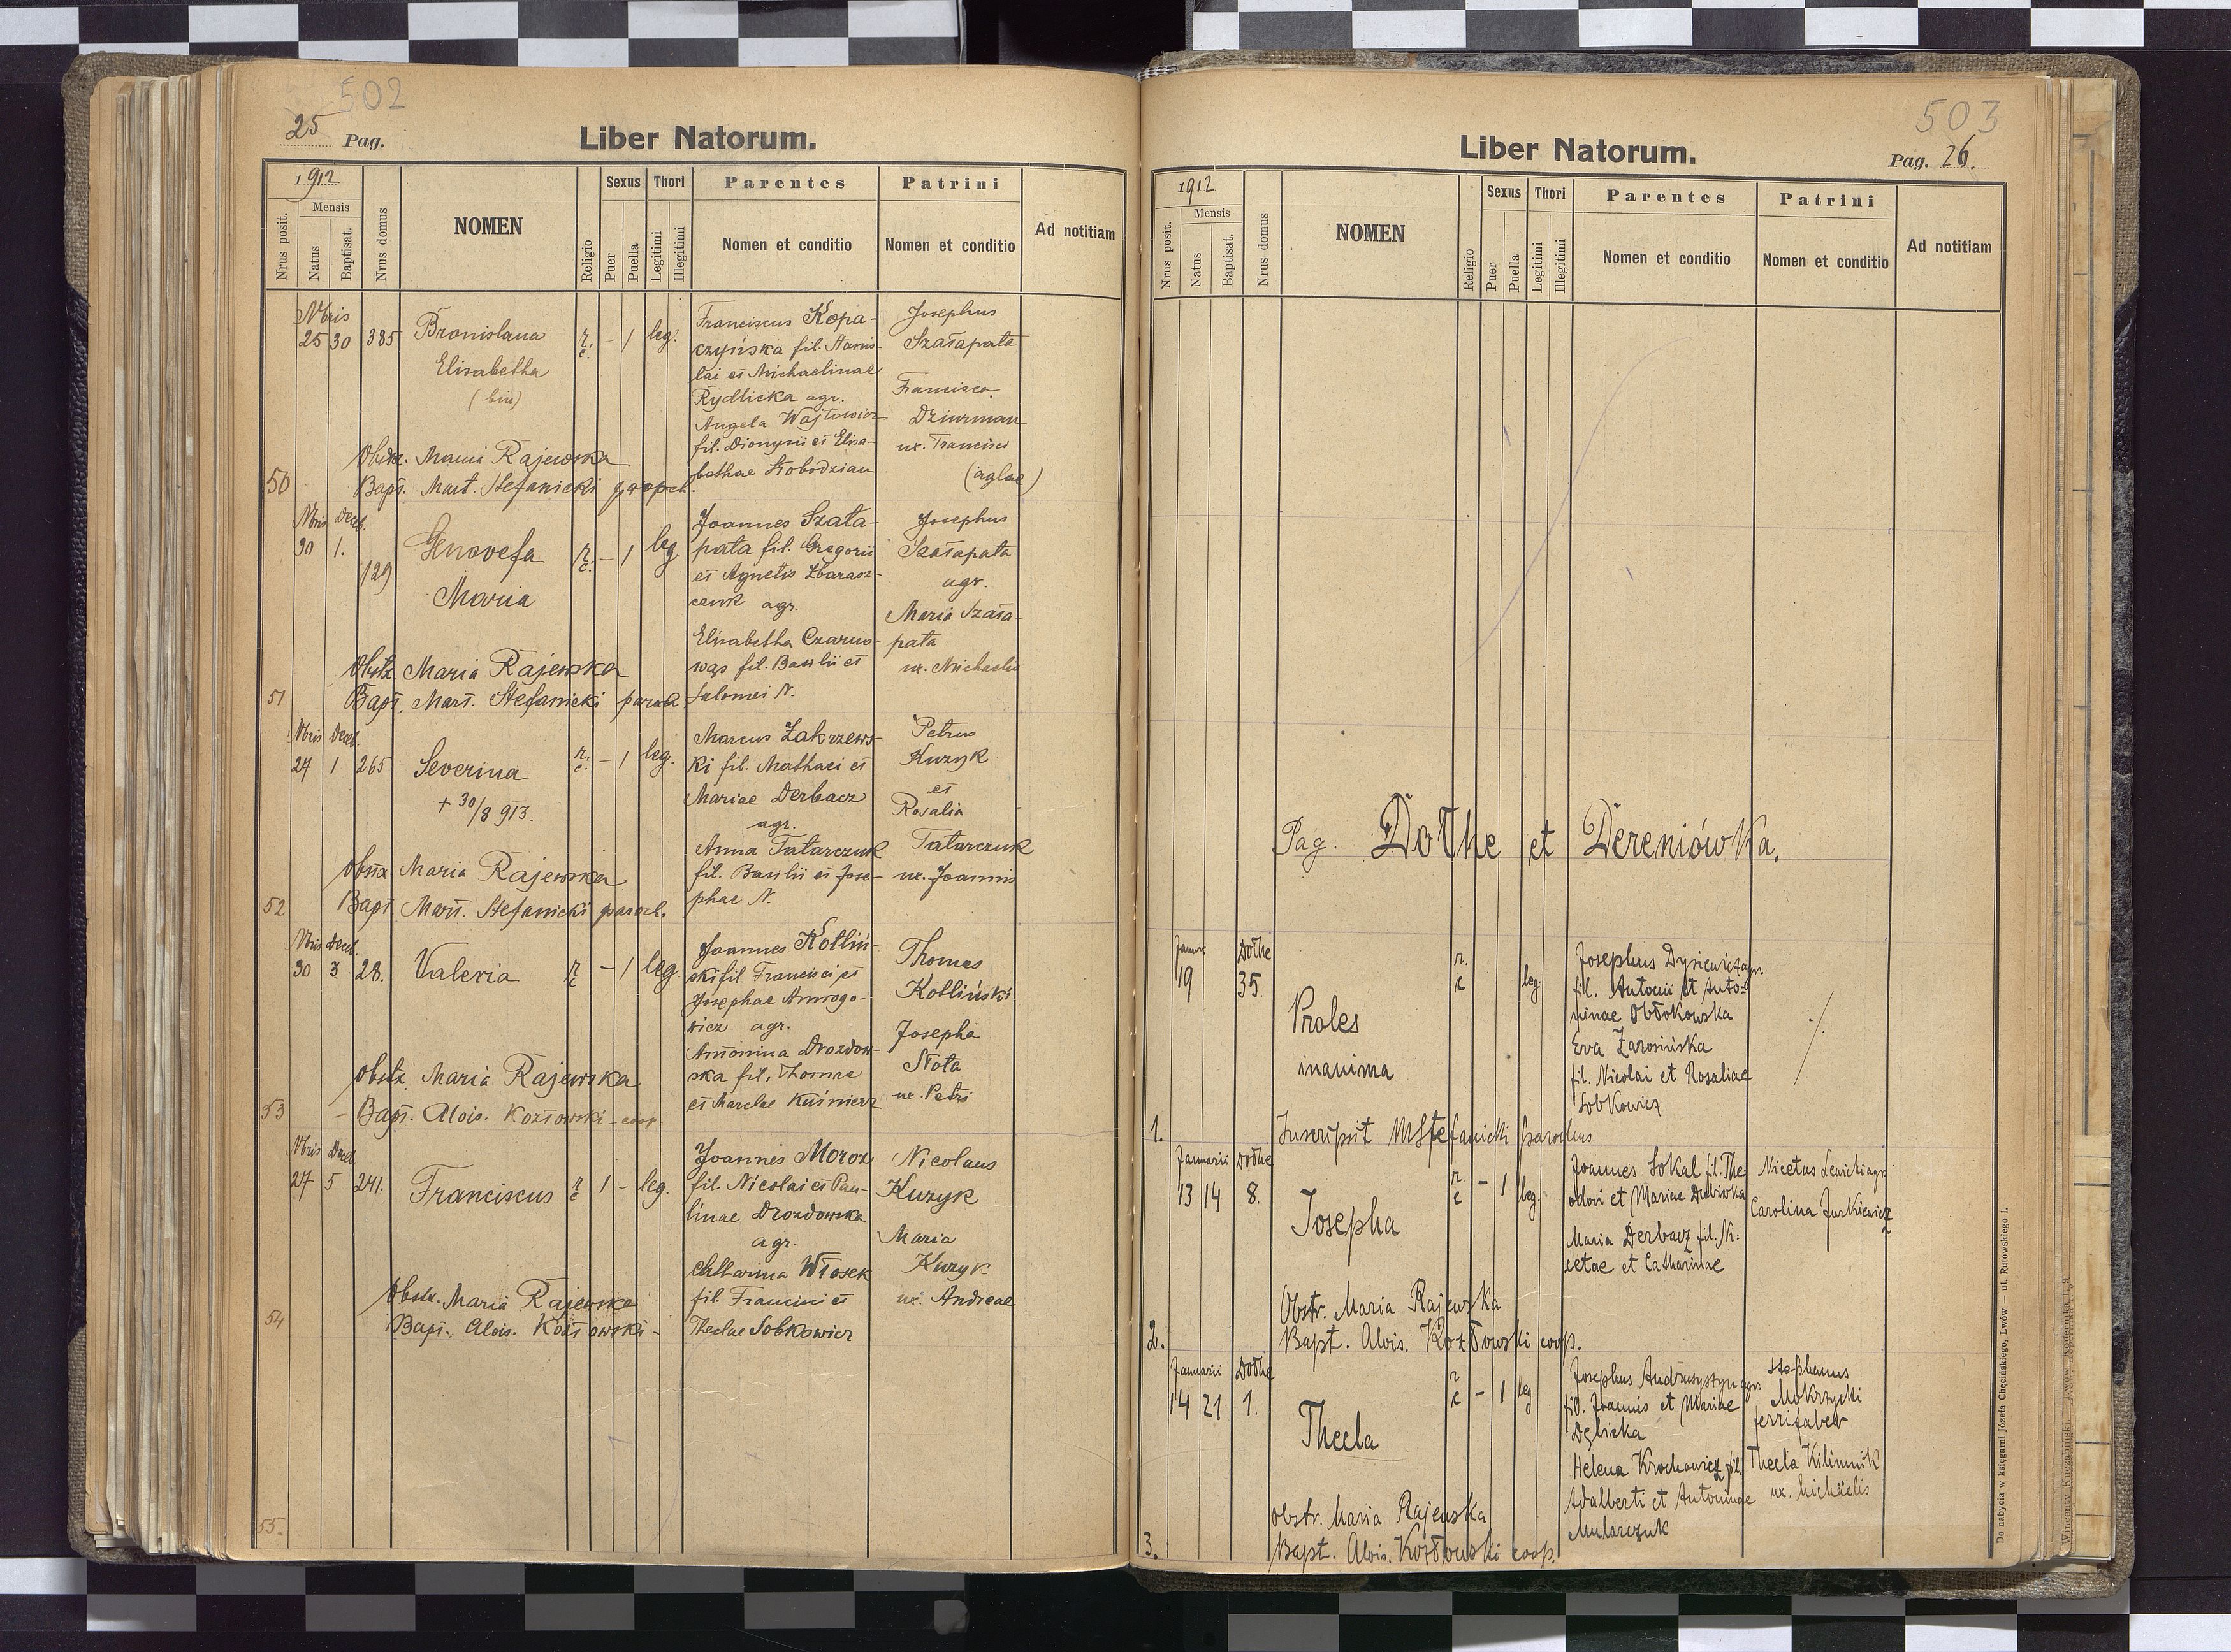 502
25 Pag.
Liber Natorum.
1912
Nrus posit.
Mensis
Natus
Baptisat.
Nrus domus
NOMEN
Religio
Sexus
Puer
Puella
Thori
Legitimi
Illegitimi
Parentes
Nomen et conditio
Patrini
Nomen et conditio
Ad notitiam
Nbris
25 30 385 Bronislaua r. c. - 1 leg.
Elisabetha
(bin)
Franciscus Kopa-
czyńska fil. Stanis-
lai et Michaelinae
Rydlicka agr.
Angela Wojtowicz
fil. Dionysii et Elisa-
bethae Słobodzian
Josephus
Szałapata
Francisca
Dziurman
ux. Francisci
(aglae)
Obstr. Maria Rajewska
50 Bapt. Mart. Stefanicki
Nbris Decb.
30 1. 129 Genovefa r. c. - 1 leg.
Maria
Joannes Szała-
pata fil. Gregorii
et Agnetis Zbarasz-
czuk agr.
Elisabetha Czarno-
wąs fil. Basilii et
Salomei N.
Josephus
Szałapata
agr.
Maria Szała-
pata
ux. Michaelis
Obstr. Maria Rajewska
51 Bapt. Mart. Stefanicki paroch.
Nbris Decb.
27 1 265 Severina r. c. - 1 leg.
+ 30/8 913.
Marcus Zakrzews-
ki fil. Mathaei et
Mariae Derbacz
agr.
Anna Tatarczuk
fil. Basilii et Jose-
phae N.
Petrus
Kuzyk
et
Rosalia
Tatarczuk
ux. Joannis
Obstr. Maria Rajewska
52 Bapt. Mart. Stefanicki paroch.
Nbris Decb.
30 3 28. Valeria r. c. - 1 leg.
Joannes Kotliń-
ski fil. Francisci et
Josephae
agr.
Antonina Drozdow-
ska fil. Thomae
et Marclae Kuśnierz
Thomas
Kotliński
Josepha
Nota
ux. Petri
Obstr. Maria Rajewska
53 - Bapt. Alois. Kozłowski - coop
Nbris Decb.
27 5 241. Franciscus r. c 1 - leg.
Joannes Moroz
fil. Nicolai et Pau-
linae Drozdowska
agr.
Catharina Włosek
fil. Francisci et
Theclae Sobkowicz
Nicolaus
Kuzyk
Maria
Kuzyk
ux. Andreae
Obstr. Maria Rajewska
54 Bapt. Alois. Kozłowski -
55.
503
Liber Natorum.
Pag. 26.
1912
Nrus posit.
Mensis
Natus
Baptisat.
Nrus domus
NOMEN
Religio
Sexus
Puer
Puella
Thori
Legitimi
Illegitimi
Parentes
Nomen et conditio
Patrini
Nomen et conditio
Ad notitiam
Pag. Dołhe et Dereniówka.
Januar Dołhe
19 35. r. c leg.
Proles
inanima
Josephus Dysiewicz agr.
fil. Antonii et Anto-
ninae Obłokowska
Eva Zarosińska
fil. Nicolai et Rosaliae
Sobkowicz
1. Inscripsit MStefanicki parochus
Januarii Dołhe
13 14 8. Josepha r. c - 1 leg.
Joannes Sokal fil. The-
odori et Mariae
Maria Derbacz fil. Ni-
cetae et Catharinae
Nicetas agr.
Carolina Jurkiewicz
Obstr. Maria Rajewska
2. Bapt. Alois. Kozłowski coop.
Januarii Dołhe
14 21 1. Thecla r c - 1 leg
Josephus agr.
fil. Joannis et Mariae
Dębicka
Helena Krochowicz fil.
Adalberti et Antoninae
Mularczuk
Stephanus
Mokrzycki
ferrifaber
Thecla Kilimnik
ux. Michaelis
Obstr. Maria Rajewska
3. Bapt. Alois. Kozłowski coop.
Do nabycia w księgarni Józefa Chęcińskiego, Lwów — ul. Rutowskiego 1.